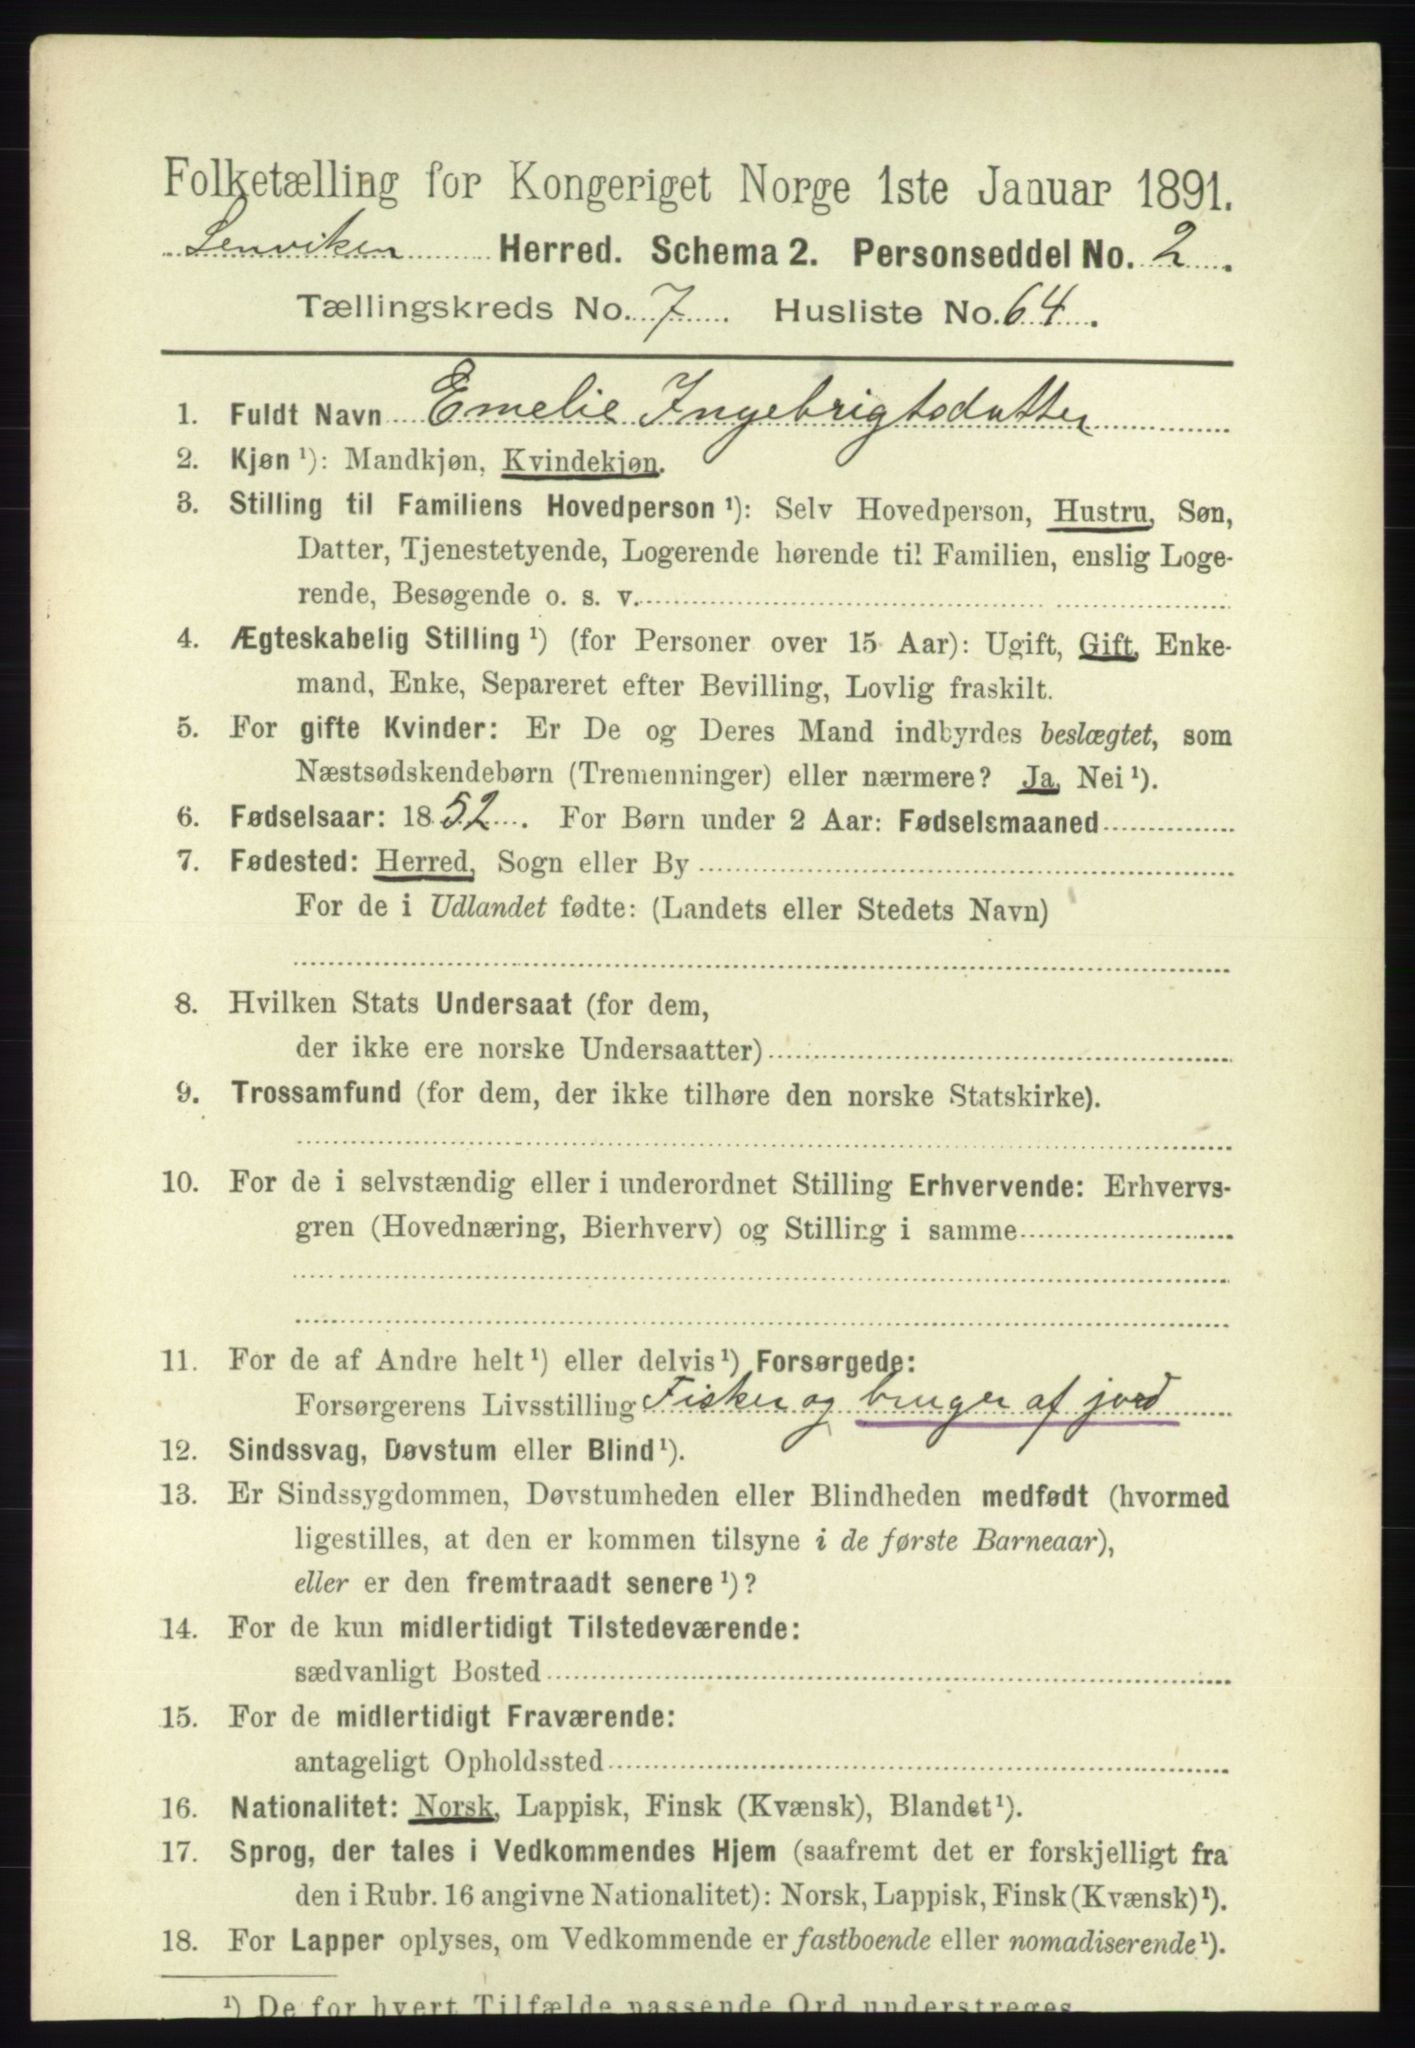 Folketælling for Kongeriget Norge 1ste Januar 1891.
Lenviken Herred. Schema 2. Personseddel No. 2.
Tællingskreds No. 7. Husliste No. 64.
1. Fuldt Navn Emelie Ingebrigtsdatter
2. Kjøn ¹): Mandkjøn, Kvindekjøn.
3. Stilling til Familiens Hovedperson ¹): Selv Hovedperson, Hustru, Søn,
Datter, Tjenestetyende, Logerende hørende til Familien, enslig Loge-
rende, Besøgende o. s. v.
4. Ægteskabelig Stilling ¹) (for Personer over 15 Aar): Ugift, Gift, Enke-
mand, Enke, Separeret efter Bevilling, Lovlig fraskilt.
5. For gifte Kvinder: Er De og Deres Mand indbyrdes beslægtet, som
Næstsødskendebørn (Tremenninger) eller nærmere? Ja, Nei ¹).
6. Fødselsaar: 1852. For Børn under 2 Aar: Fødselsmaaned
7. Fødested: Herred, Sogn eller By
For de i Udlandet fødte: (Landets eller Stedets Navn)
8. Hvilken Stats Undersaat (for dem,
der ikke ere norske Undersaatter)
9. Trossamfund (for dem, der ikke tilhøre den norske Statskirke).
10. For de i selvstændig eller i underordnet Stilling Erhvervende: Erhvervs-
gren (Hovednæring, Bierhverv) og Stilling i samme
11. For de af Andre helt ¹) eller delvis ¹) Forsørgede:
Forsørgerens Livsstilling Fisker og bruger af jord
12. Sindssvag, Døvstum eller Blind ¹).
13. Er Sindssygdommen, Døvstumheden eller Blindheden medfødt (hvormed
ligestilles, at den er kommen tilsyne i de første Barneaar),
eller er den fremtraadt senere ¹)?
14. For de kun midlertidigt Tilstedeværende:
sædvanligt Bosted
15. For de midlertidigt Fraværende:
antageligt Opholdssted
16. Nationalitet: Norsk, Lappisk, Finsk (Kvænsk), Blandet ¹).
17. Sprog, der tales i Vedkommendes Hjem (saafremt det er forskjelligt fra
den i Rubr. 16 angivne Nationalitet): Norsk, Lappisk, Finsk (Kvænsk) ¹).
18. For Lapper oplyses, om Vedkommende er fastboende eller nomadiserende ¹).
¹) De for hvert Tilfælde passende Ord understreges.